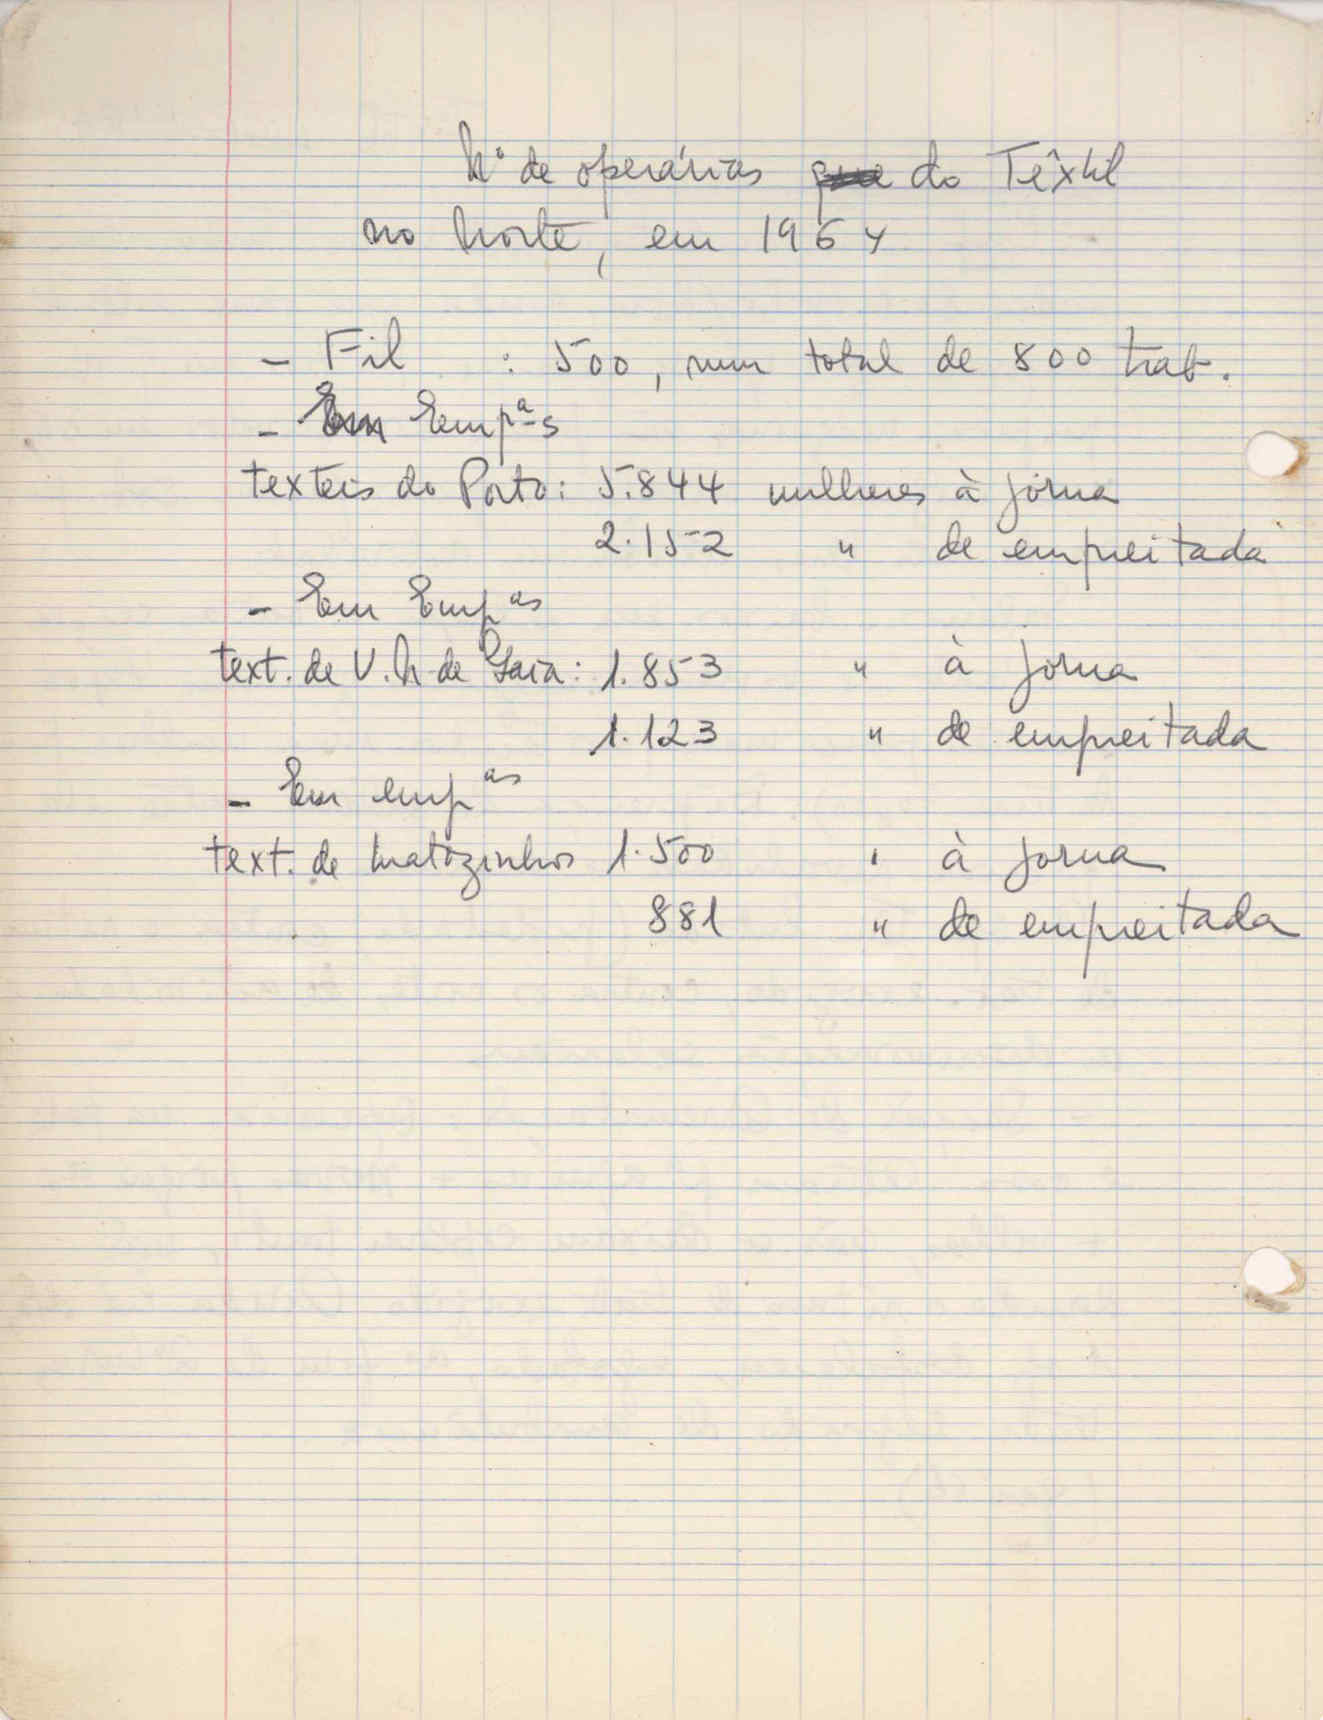 Nº de operárias do Têxtil
no Norte, em 1964
- Fil : 500, num total de 800 trab.
- Empªs
texteis do Porto: 5.844 mulheres à jorna
2.152 " de empreitada
- Em Empªs
text. de V. N. de Gaia: 1.853 " à jorna
1.123 " de empreitada
- Em empªs
text. de Matozinhos 1.500 " à jorna
881 " de empreitada